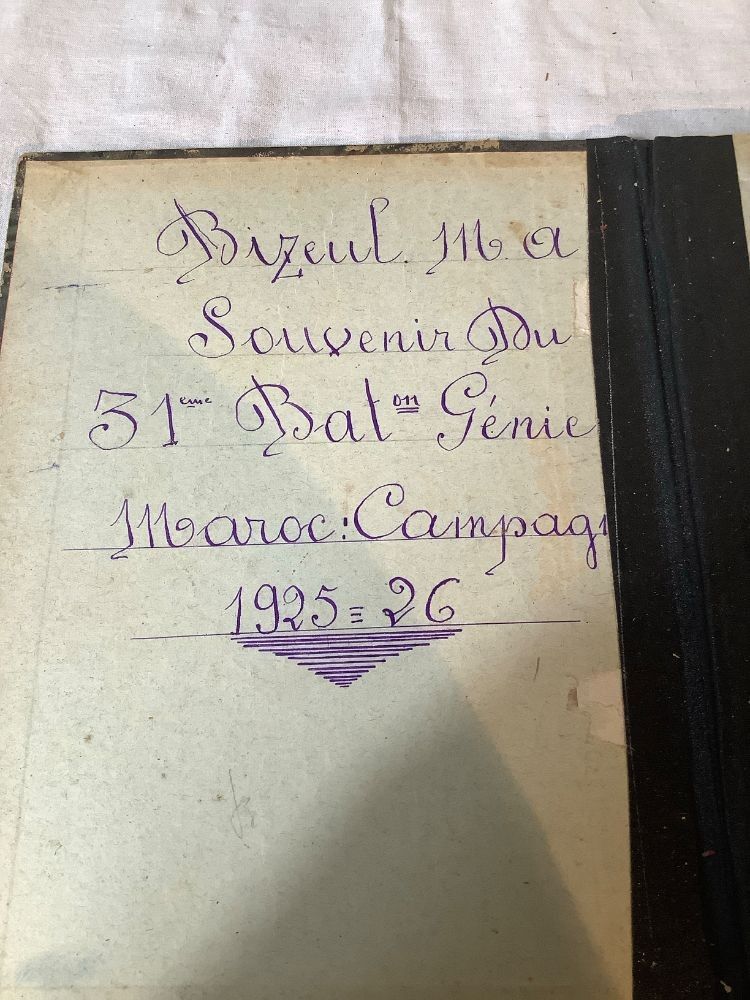 Bizeul. M a
Souvenir Du
31ème Baton Génie
Maroc: Campagn
1925 = 26